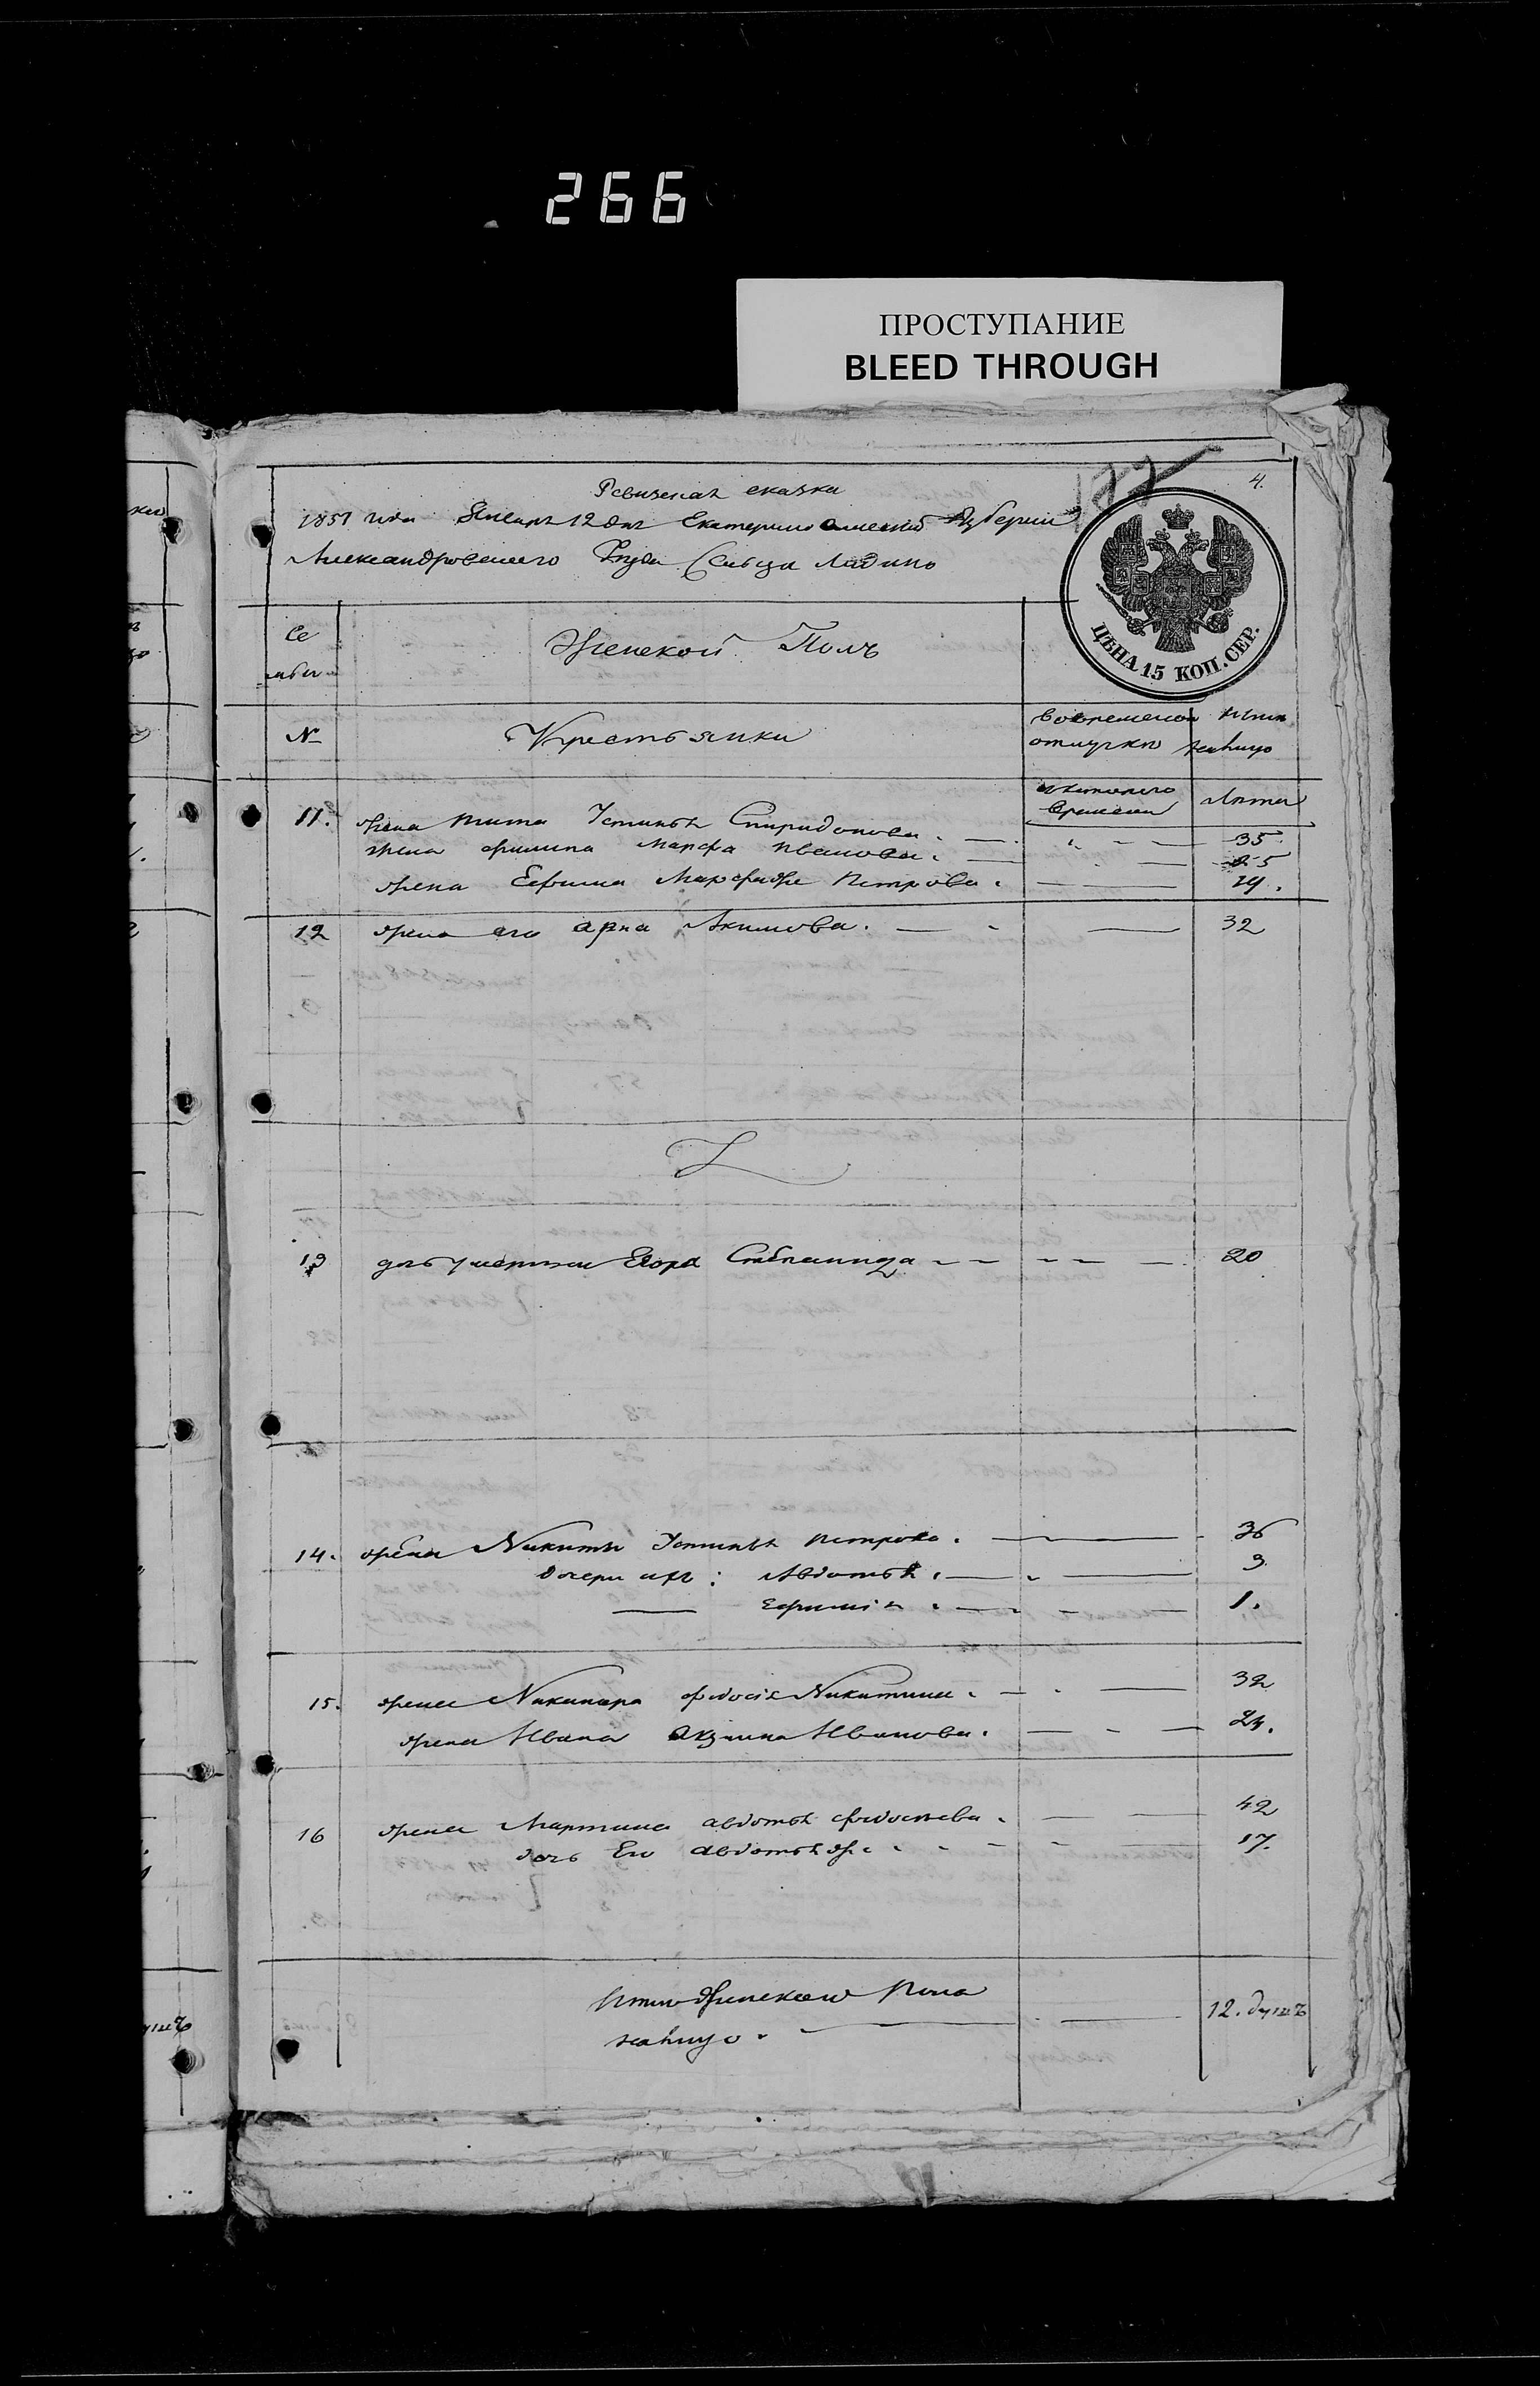 266
ПРОСТУПАНИЕ
BLEED THROUGH
177
4.
Ревизская сказка
1851 года Генваря 12 дня Екатеринославской Губернии
Александровского Уѣзда Сельца
ЦѢНА 15 КОП. СЕР.
Се
мьи
Женской Полъ
№
Крестьянки
Вовременной
отлучкѣ
Нынѣ
налицо
скотораго
времени
Лѣта
11. жена Тита Устинья Спиридонова. 35.
жена Филипа Марфа Иванова. 25
жена Ефима Марфа же Петрова. 19.
12 жена его Акимова. 32
13 дочь умершаго Егора Степанида 20
14. жена Никиты Устинья Петрова. 36
дочери ихъ: Авдотья. 3.
Ефимія. 1.
15. жена Никанора Федосія Никитина. 32
жена Ивана Акулина Иванова. 24.
16 жена Мартина Авдотья Федосѣева. 42
дочь Его Авдотья же. 17.
Итого женскаго пола
налицо.
12. душъ
душъ